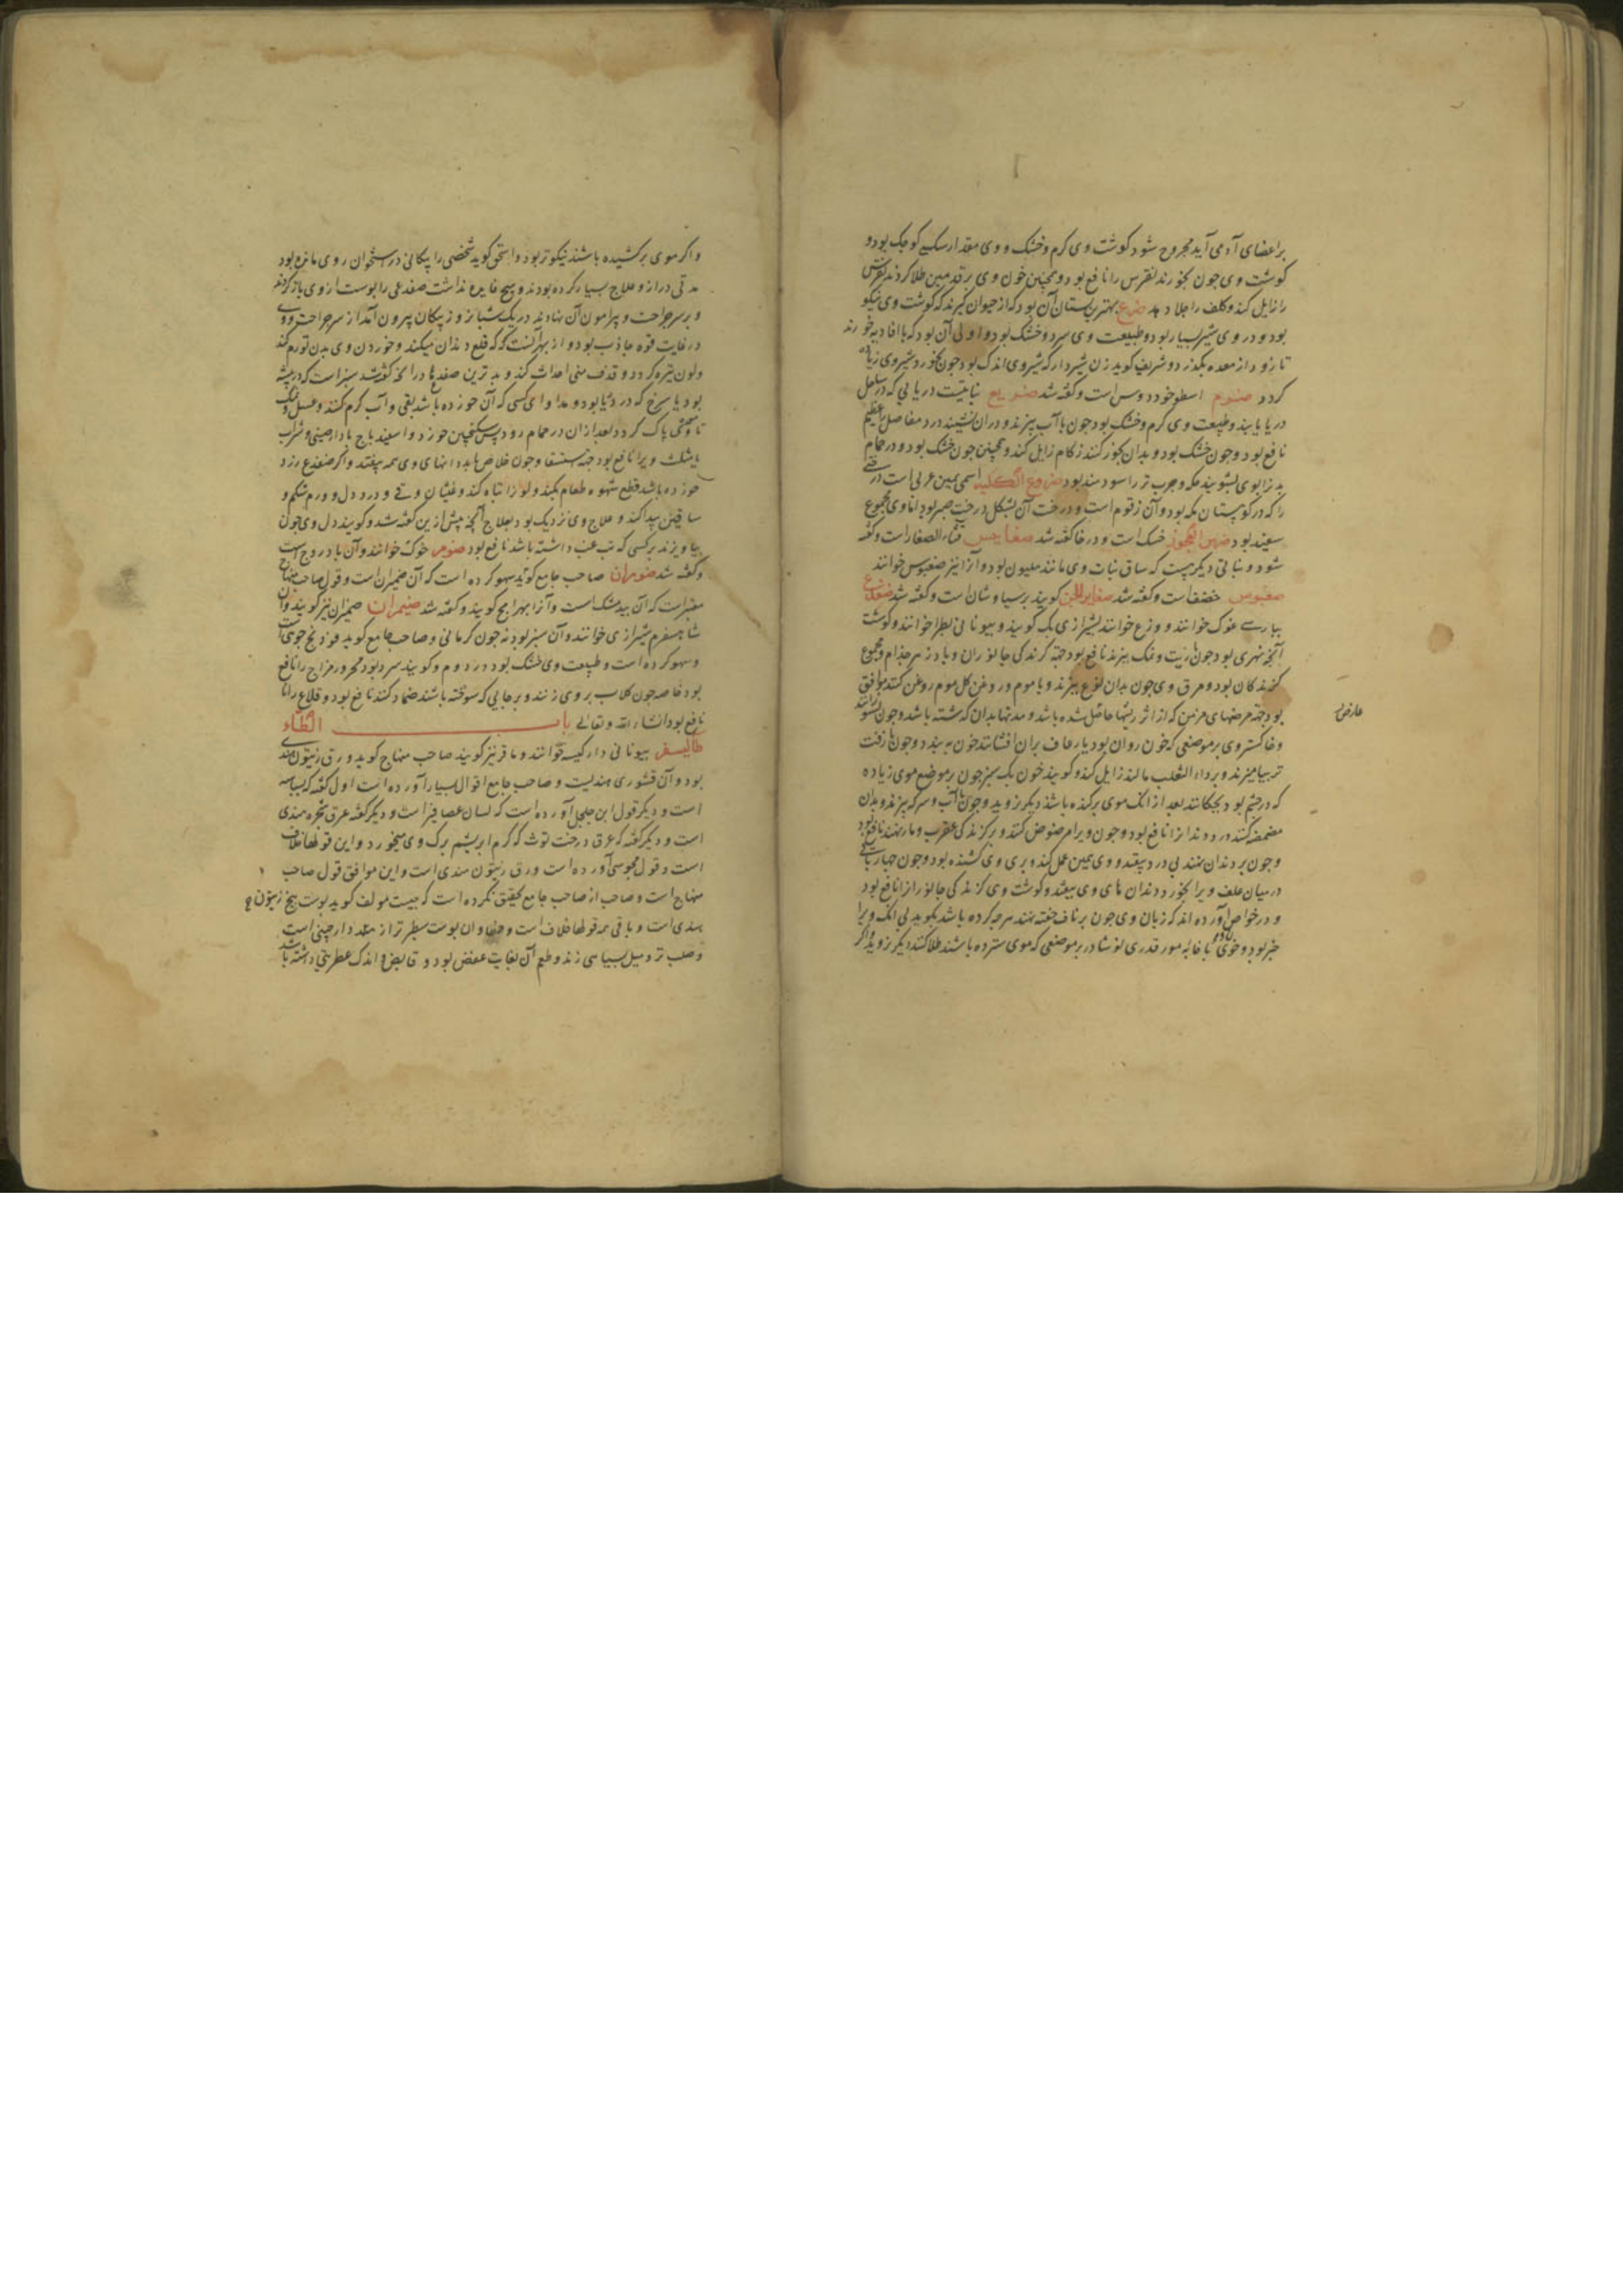 بر اعضای آدمی آید مجروح شود کوشت وی کرم و خشک و وی مقدار سکی کوجک بود و
کوشت وی جون بخورند نقرس را نافع بود و همچنین خون وی بر قدمین طلا کردند نقرس
را زایل کند و کلف را جلا دهد ضرع بهترین پستان آن بود که از حیوان کیرند که کوشت وی نیکو
بود و در وی شیر بسیار بود و طبیعت وی سرد و خشک بود و اولی آن بود که با افادیه خورند
تا زود از معده بکذرد و شریف کوید زن شیردار که شیر وی اندک بود جون بخورد شیر وی زیاده
کردد ضرم اسطوخودوس است و کفته شد ضریع نباتیست دریایی که در ساحل
دریا یابند و طبیعت وی کرم و خشک بود جون با آب بپزند و در آن نشینند درد مفاصل عظیم
نافع بود و جون خشک بود و بدان بخور کنند زکام زایل کند و همچنین جون خشک بود و در حمام
بدن را بوی بشویند حکه و جرب تر را سودمند بود ضروع الکلبه اسمی یمین عربی است درختی
را که در کوهستان مکه بود و آن زقوم است و درخت آن بشکل درخت صبر بود اما وی مجموع
سفید بود ضرس العجوز خسک است و در خا کفته شد ضغابیس قثاء الصغار است و کفته
شود و نباتی دیکر هست که ساق نبات وی مانند هلیون بود و آنرا نیز ضغبوس خوانند
ضغبوس ضغفاست و کفته شد ضفایر الجن کویند برسیاوشان است و کفته شد ضفدع
بپارسی غوک خوانند و وزع خوانند بشیرازی بک کویند و بیونانی بطراخوانند و کوشت
آنچه نهری بود جون با زیت و نمک بپزند نافع بود جهة کزندکی جانوران و پادزهر جذام و مجموع
کزندکان بود و مرق وی جون بدان نوع بپزند و با موم و روغن کل موم روغن کنند موافق
بود جهة مرضهای مزمن که از اثر ریشها حاصل شده باشد و مدتها بدان کذشته باشد و جون بسوزانند
و خاکستر وی بر موضعی که خون روان بود یا رعاف بر آن افشانند خون ببندد و جون با زفت
تر بیامیزند و بر داء الثعلب مالند زایل کند و کویند خون بک سبز جون بر موضع موی زیاده
که در جشم بود بجکانند بعد از آنک موی برکنده باشند دیکر نروید و جون با آب و سرکه بپزند و بدان
مضمضه کنند درد دندان را نافع بود و جون ویرا مرضوض کنند و بر کزندکی عقرب و مار نهند نافع بود
و جون بر دندان نهند بی درد بیفتد و وی همین عمل کند و بری وی کشنده بود و جون جهار پای
در میان علف ویرا بخورد دندان های وی بیفتد و کوشت وی کزندکی جانوران را نافع بود
و در خواص آورده اند که زبان وی جون بر ناف خفته نهند هرچه کرده باشد بکوید بی آنک ویرا
خبر بود و خون وی با خایه مور قدری نوشادر بر موضعی که موی سترده باشند طلا کنند دیکر نروید و اکر
عارض
و اکر موی برکشیده باشند نیکوتر بود و اسحق کوید شخصی را پیکانی در استخوان روی مانده بود
مدتی دراز و علاج بسیار کرده بودند و هیچ فایده نداشت ضفدعی را پوست از وی باز کردند
و بر سر جراحت و پیرامون آن نهادند در یک شبانروز پیکان بیرون آمد از سر جراحت و وی
در غایت قوة جاذب بود و از بهر آنست که قلع دندان میکند و خوردن وی بدن تورم کند
و لون تیره کردد و قذف منی احداث کند و بدترین ضفدعها در آنچه کفته شد سبز است که در بیشه
بود یا سرخ که در دریا بود و مداوای کسی که آن خورده باشد بقی و آب کرم کنند و عسل و نمک
تا معده پاک کردد بعد از آن در حمام رود پس سکنجبین خورد و اسفیدباج با دارجینی و شراب
بایشک ویرا نافع بود جهة استسقا و جون خلاص یابد دندانهای وی همه بیفتد و اکر ضفدع زرد
خورده باشد قطع شهوه طعام بکند و لون را تباه کند و غثیان و قی و درد دل و ورم شکم و
ساقین پیدا کند و علاج وی نزدیک بود بعلاج آنچه پیش ازین کفته شد و کویند دل وی جون
بیاویزند بر کسی که تب غب داشته باشد نافع بود ضومر حوک خوانند و آن بادروج است
و کفته شد ضومران صاحب جامع کوید سهو کرده است که آن ضمیران است و قول صاحب منهاج
معتبر است که آن بیدمشک است و آنرا بهرامج کویند و کفته شد ضیمران ضمیران نیز کویند و آن
شاهسفرم شیرازی خوانند و آن سبز بود نه جون کرمانی و صاحب جامع کوید فودنج جوی است
و سهو کرده است و طبیعت وی خشک بود در دوم و کویند سرد بود محرور مزاج را نافع
بود خاصه جون کلاب بر وی زنند و بر جایی که سوخته باشند ضماد کنند نافع بود و قلاع را
نافع بود انشاء الله و تعالی باب الطاء
طالیسفر بیونانی دارکیسه خوانند و ماقر نیز کویند صاحب منهاج کوید ورق زیتون هندی
بود و آن قشوری هندیست و صاحب جامع اقوال بسیار آورده است اول کفته که بسباسه
است و دیکر قول ابن جلجل آورده است که لسان عصافیر است و دیکر کفته عرق شجره هندی
است و دیکر کفته که عرق درخت توث که کرم ابریشم برک وی میخورد و این قولها خلاف
است و قول مجوسی آورده است ورق زیتون هندی است و این موافق قول صاحب
منهاج است و صاحب از صاحب جامع تحقیق نکرده است که جیست مولف کوید پوست بیخ زیتون
هندی است و باقی همه قولها خلاف است و آن پوست سطبرتر از دارجینی است
و صلب تر و میل بسیاهی زند و طعم آن بغایت عفص بود و قابض و اندک عطریتی داشته باشد